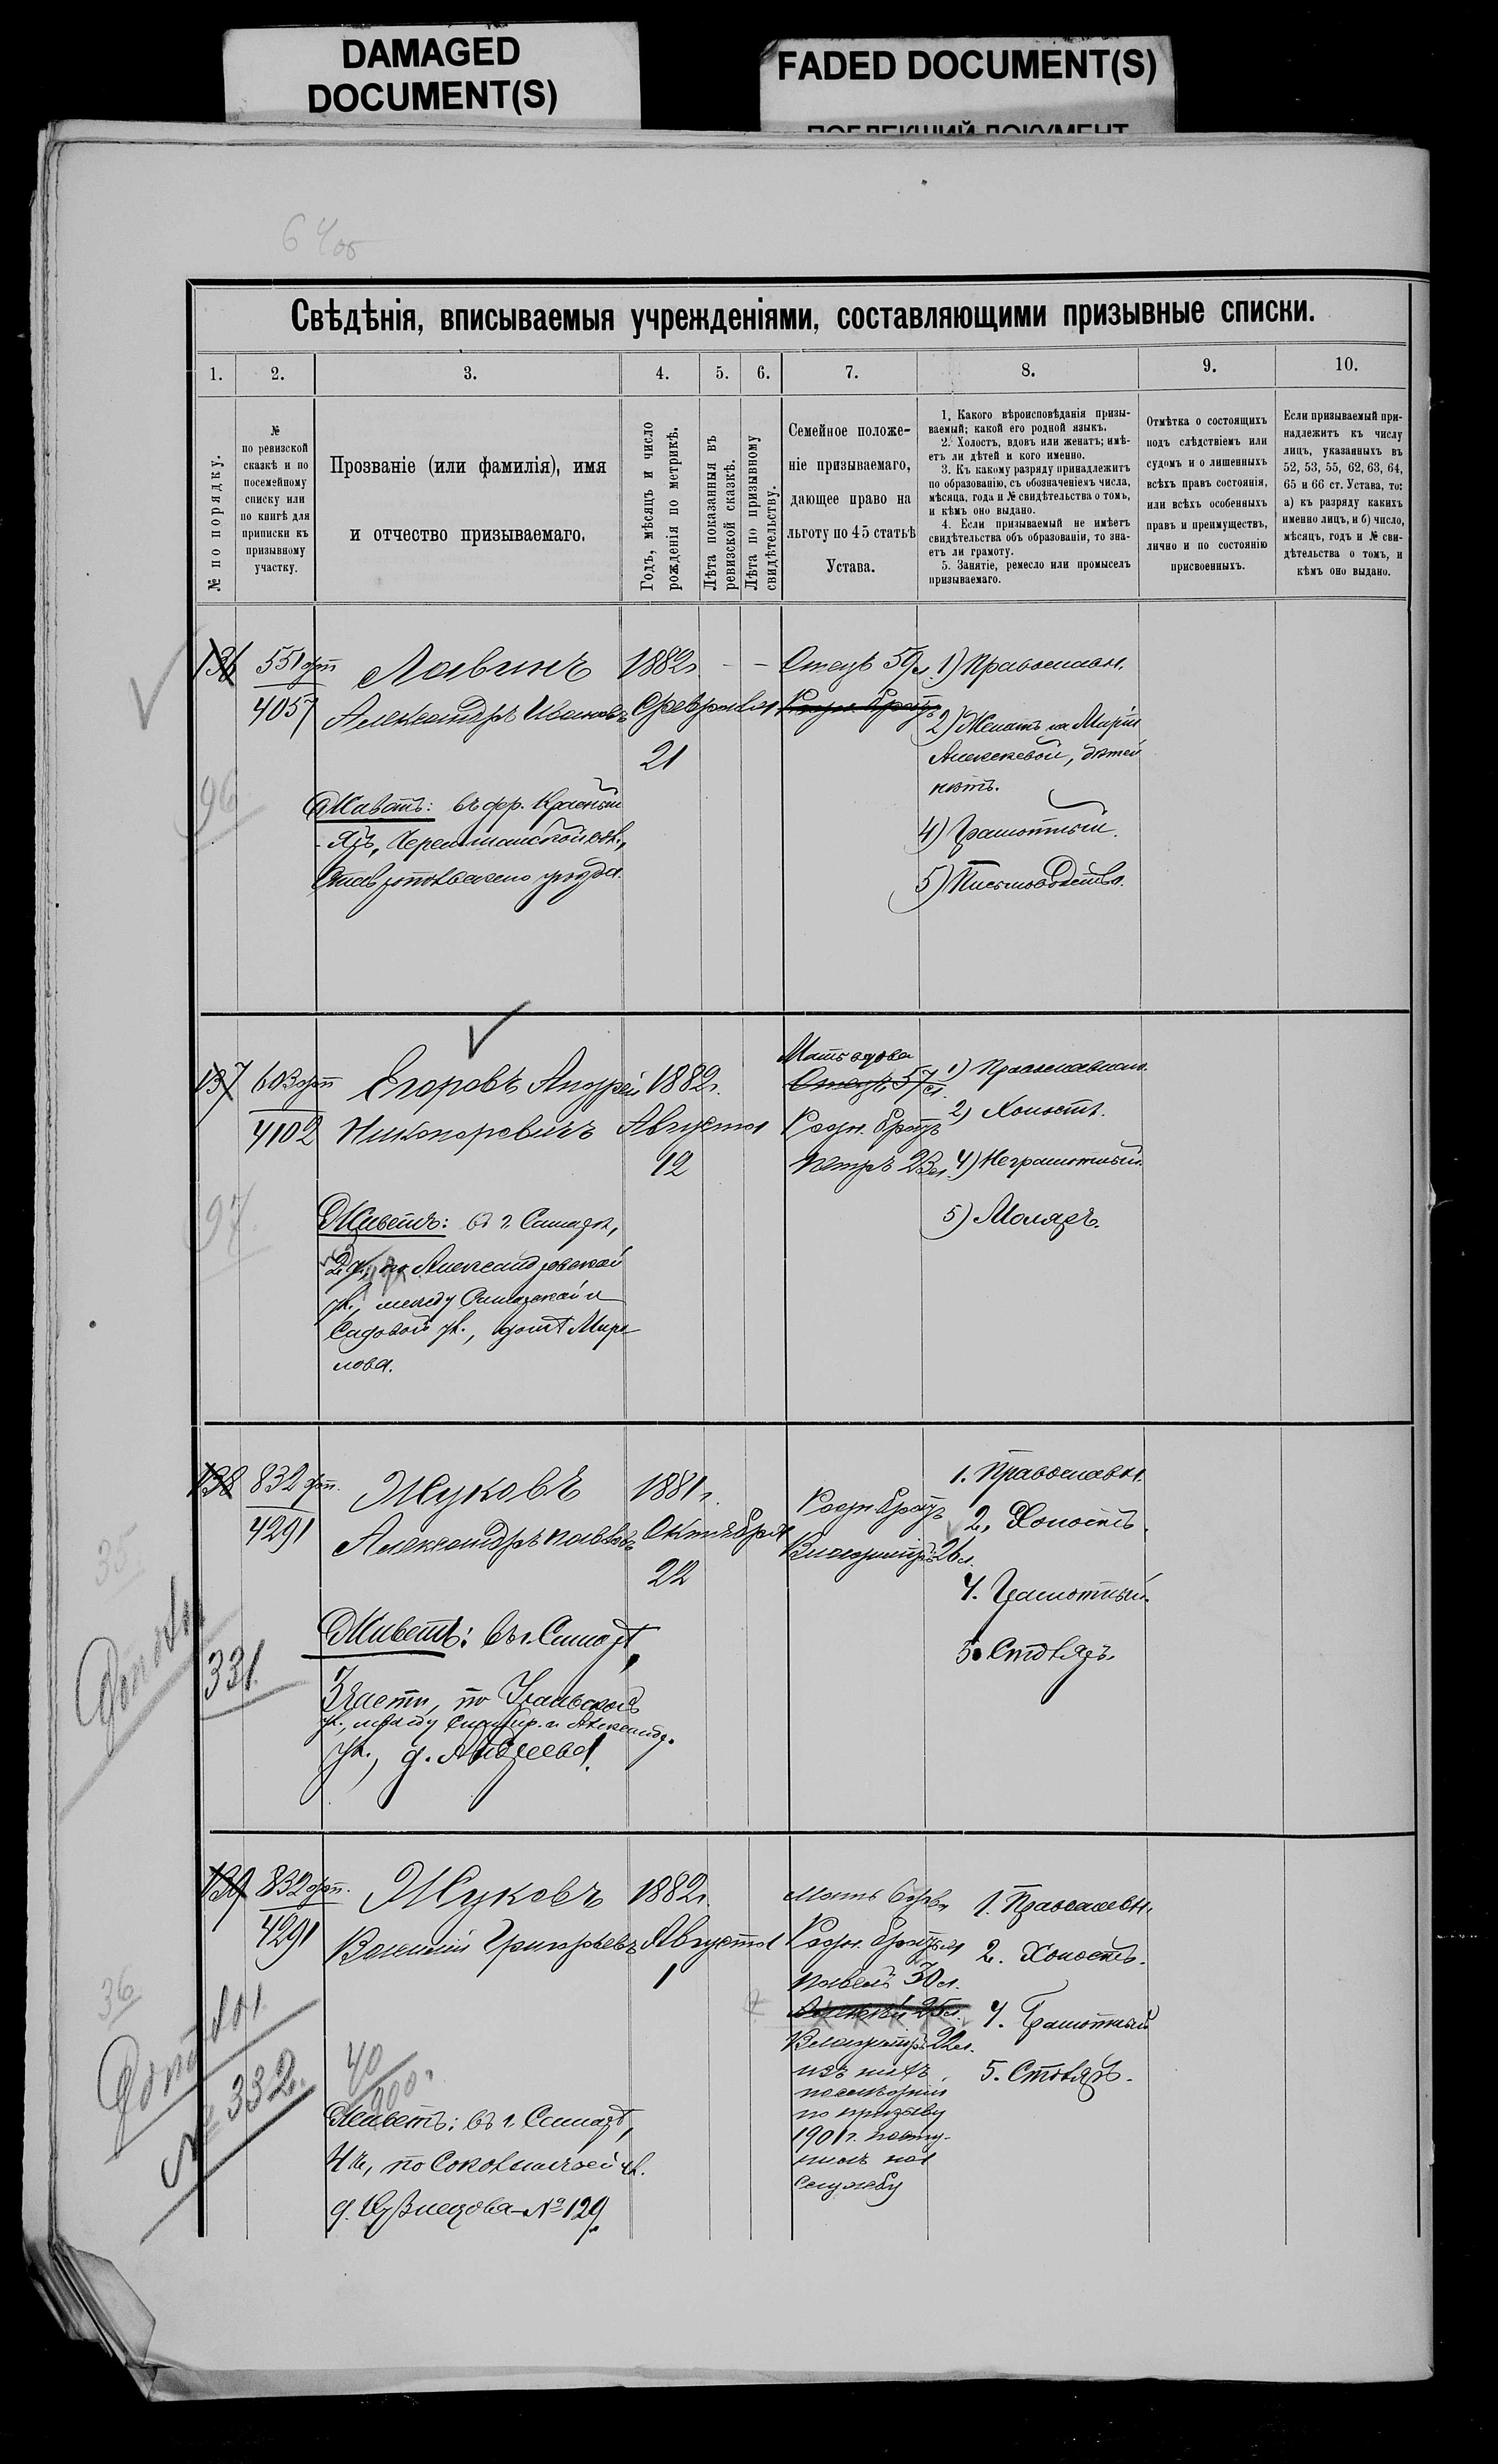 DAMAGED
DOCUMENT(S)
FADED DOCUMENT(S)
64 об
Свѣдѣнія, вписываемыя учрежденіями, составляющими призывные списки.
1.
2.
3.
4.
5.
6.
7.
8.
9.
10.
№ по порядку.
№
по ревизской
сказкѣ и по
посемейному
списку или
по книгѣ для
приписки къ
призывному
участку.
Прозваніе (или фамилія), имя
и отчество призываемаго.
Годъ, мѣсяцъ и число
рожденія по метрикѣ.
Лѣта показанныя въ
ревизской сказкѣ.
Лѣта по призывному
свидѣтельству.
Семейное положе-
ніе призываемаго,
дающее право на
льготу по 45 статьѣ
Устава.
1. Какого вѣроисповѣданія призы-
ваемый; какой его родной языкъ.
2. Холостъ, вдовъ или женатъ; имѣ-
етъ ли дѣтей и кого именно.
3. Къ какому разряду принадлежитъ
по образованію, съ обозначеніемъ числа,
мѣсяца, года и № свидѣтельства о томъ,
и кѣмъ оно выдано.
4. Если призываемый не имѣетъ
свидѣтельства объ образованіи, то зна-
етъ ли грамоту.
5. Занятіе, ремесло или промыселъ
призываемаго.
Отмѣтка о состоящихъ
подъ слѣдствіемъ или
судомъ и о лишенныхъ
всѣхъ правъ состоянія,
или всѣхъ особенныхъ
правъ и преимуществъ,
лично и по состоянію
присвоенныхъ.
Если призываемый при-
надлежитъ къ числу
лицъ, указанныхъ въ
52, 53, 55, 62, 63, 64,
65 и 66 ст. Устава, то:
а) къ разряду какихъ
именно лицъ, и б) число,
мѣсяцъ, годъ и № сви-
дѣтельства о томъ, и
кѣмъ оно выдано.
136
551
4057
96
Лавинъ
Александръ Ивановъ
Живетъ: въ дер. Красный
Яръ, Черемшанской вол.,
Ставропольскаго уѣзда.
1882г.
Февраля
21
Отецъ 59 л.
Родн. братъ
1) Православн.
2) Женатъ на Маріи
Алексеевой, дѣтей
нѣтъ.
4) Грамотный.
5) Письмоводство.
137
603
4102
97.
Егоровъ Андрей
Никоноровичъ
Живетъ: въ г. Самарѣ,
2 ч., по Александровской
ул., между Самарской и
Садовой ул., домъ
1882г.
Августа
12
Мать вдова
Отецъ 57 л.
Родн. братъ
Петръ 23 л.
1) Православн.
2) Холостъ.
4) Неграмотный.
5) Маляръ.
138
832
4291
35.
331.
Жуковъ
Александръ Павловъ
Живетъ: въ г. Самарѣ,
3 части, по Уральской
ул., между Симбир. и Александр.
ул., д. Андреева.
1881г.
Октября
22
Родн. братъ
Владиміръ 26 л.
1. Православн.
2. Холостъ.
4. Грамотный.
5. Столяръ.
139
832
4291
36
№ 332.
Жуковъ
Василій Григорьевъ
40
900
Живетъ: въ г. Самарѣ,
4 ч., по Сокольничьей ул.
д. Кузнецова № 129.
1882г.
Августа
1
Мать вдова
Родн. братья
Павелъ 30 л.
25 л.
Владиміръ 22 л.
изъ нихъ
послѣдній
по призыву
1901 г. посту-
пилъ на
службу
1. Православн.
2. Холостъ.
4. Грамотный
5. Столяръ.